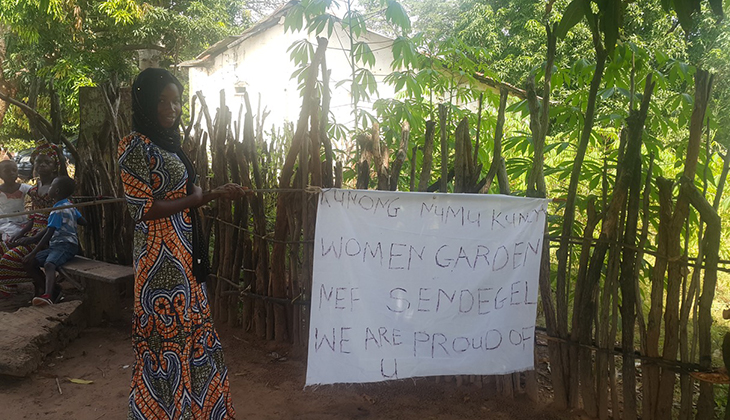 KUNONG NUMU KUNDA
WOMEN GARDEN
NEF SENDEGEL
WE ARE PROUD OF
U